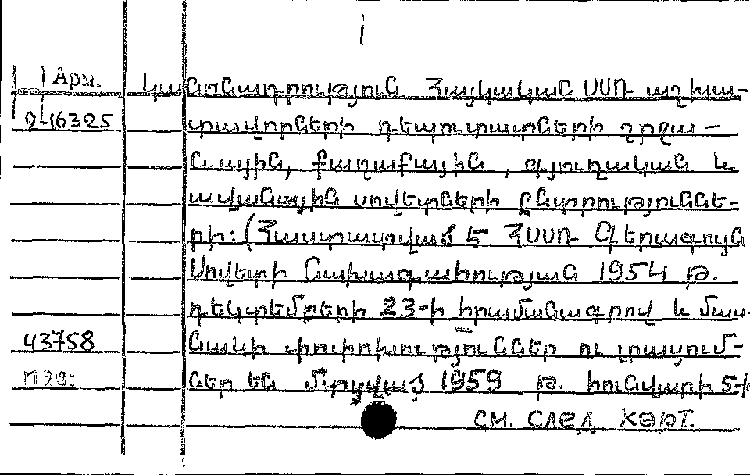 Арм.
Կանոնադրություն Հայկական ՍՍՌ աշխա-
2-16325
տավորների դեպուտատների շրջա-
նային, քաղաքային, գյուղական և
ավանային սովետների ընտրություննե-
րի: (Հաստատված է ՀՍՍՌ Գերագույն
Սովետի Նախագահության 1954 թ.
դեկտեմբերի 23-ի հրամանագրով և մաս-
43758
նակի փոփոխություններ ու լրացում-
ներ են մտցված 1959 թ. հունվարի 5-ի
СМ. СЛЕД. КАРТ.